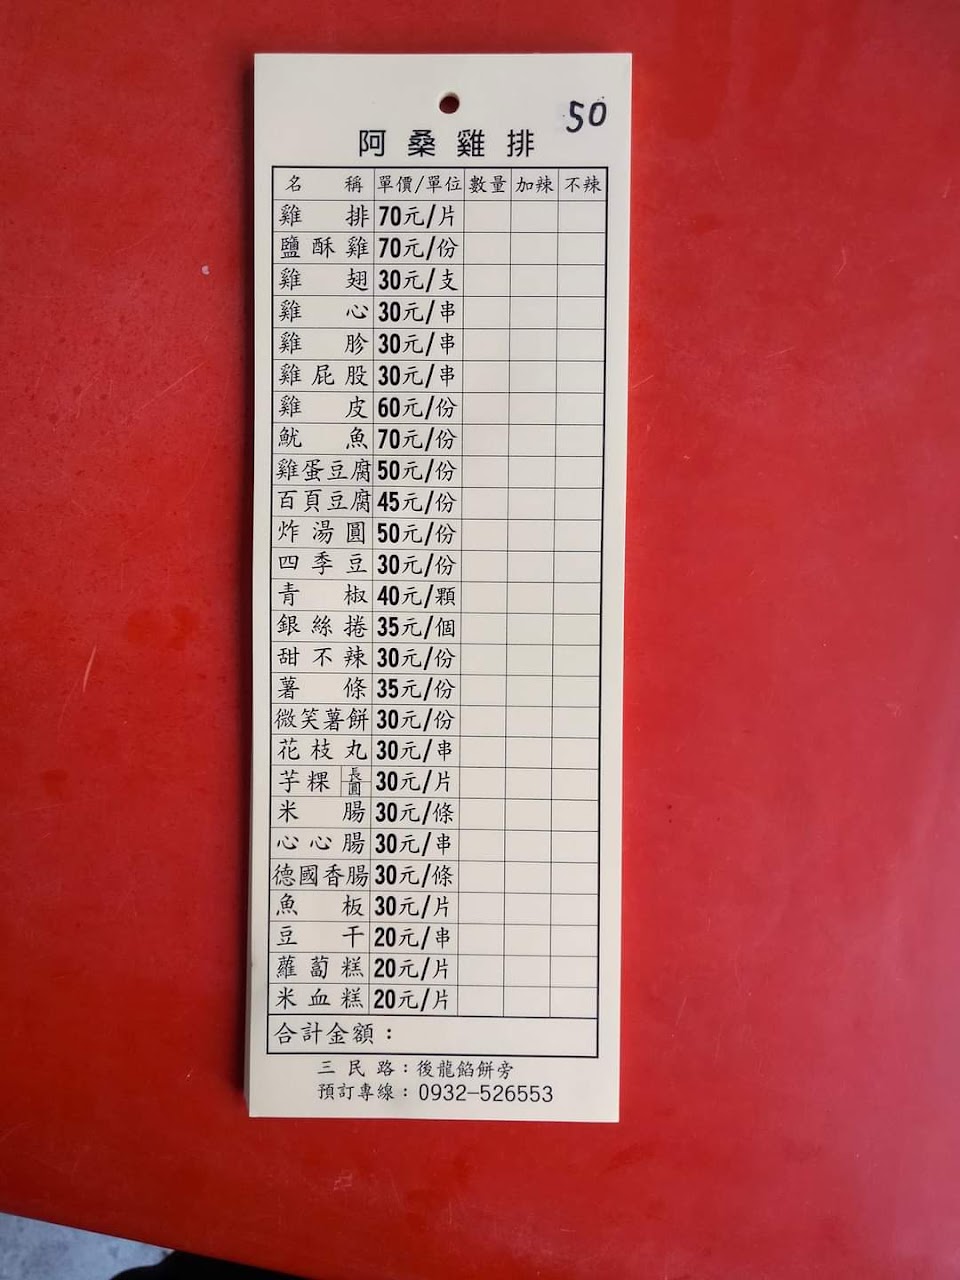 50
阿桑雞排
名稱 單價/單位 數量 加辣 不辣
雞排 70元/片
鹽酥雞 70元/份
雞翅 30元/支
雞心 30元/串
雞胗 30元/串
雞屁股 30元/串
雞皮 60元/份
魷魚 70元/份
雞蛋豆腐 50元/份
百頁豆腐 45元/份
炸湯圓 50元/份
四季豆 30元/份
青椒 40元/顆
銀絲捲 35元/個
甜不辣 30元/份
薯條 35元/份
微笑薯餅 30元/份
花枝丸 30元/串
芋粿 長 圓 30元/片
米腸 30元/條
心心腸 30元/串
德國香腸 30元/條
魚板 30元/片
豆干 20元/串
蘿蔔糕 20元/片
米血糕 20元/片
合計金額：
三民路：後龍餡餅旁
預訂專線：0932-526553